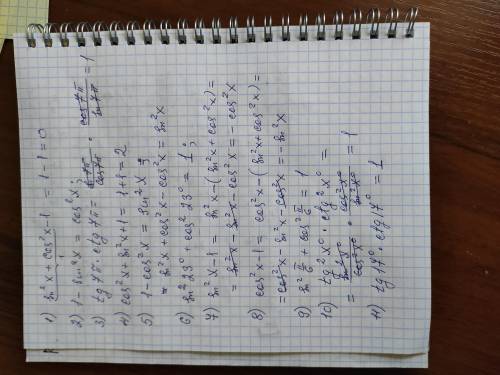 1) sin²x + cos²x - 1 = 1 - 1 = 0
2) 1 - sin²x = cos²x;
3) tg 7π · ctg 7π = sin7π/cos7π · cos7π/sin7π = 1
4) cos²x + sin²x + 1 = 1 + 1 = 2
5) 1 - cos²x = sin²x;
= sin²x + cos²x - cos²x = sin²x
6) sin²23° + cos²23° = 1;
7) sin²x - 1 = sin²x - (sin²x + cos²x) =
= sin²x - sin²x - cos²x = - cos²x
8) cos²x - 1 = cos²x - (sin²x + cos²x) =
= cos²x - sin²x - cos²x = - sin²x
9) sin² π/6 + cos² π/6 = 1
10) tg²x° · ctg²x° =
= sin²x°/cos²x° · cos²x°/sin²x° = 1
11) tg 17° · ctg 17° = 1